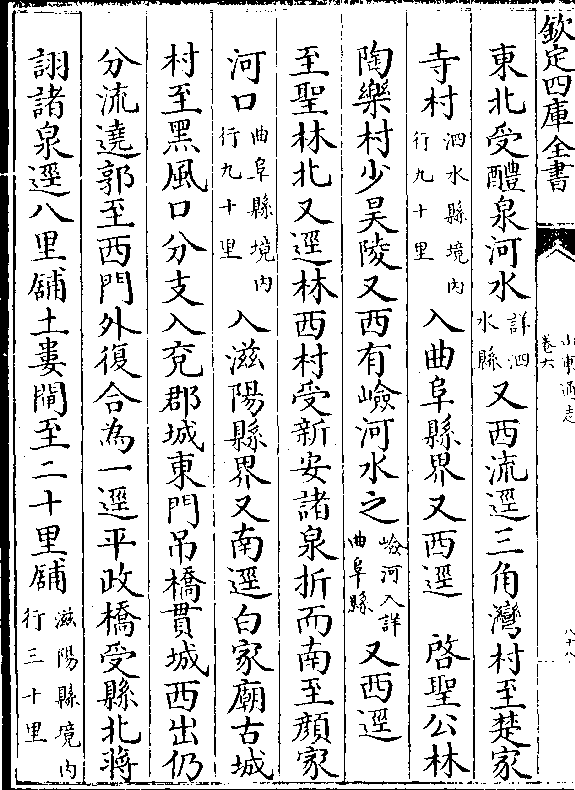 欽定四庫全書
山東通志
卷六
八十八
東北受醴泉河水詳泗水縣又西流逕三角灣村至楚家
寺村泗水縣境內行九十里入曲阜縣界又西逕　啓聖公林
陶樂村少昊陵又西有嶮河水之嶮河入詳曲阜縣又西逕
至聖林北又逕林西村受新安諸泉折而南至顔家
河口曲阜縣境內行九十里入滋陽縣界又南逕白家廟古城
村至黑風口分支入兖郡城東門吊橋貫城西出仍
分流遶郭至西門外復合為一逕平政橋受縣北蔣
詡諸泉逕八里舖土婁閘至二十里舖滋陽縣境內行三十里